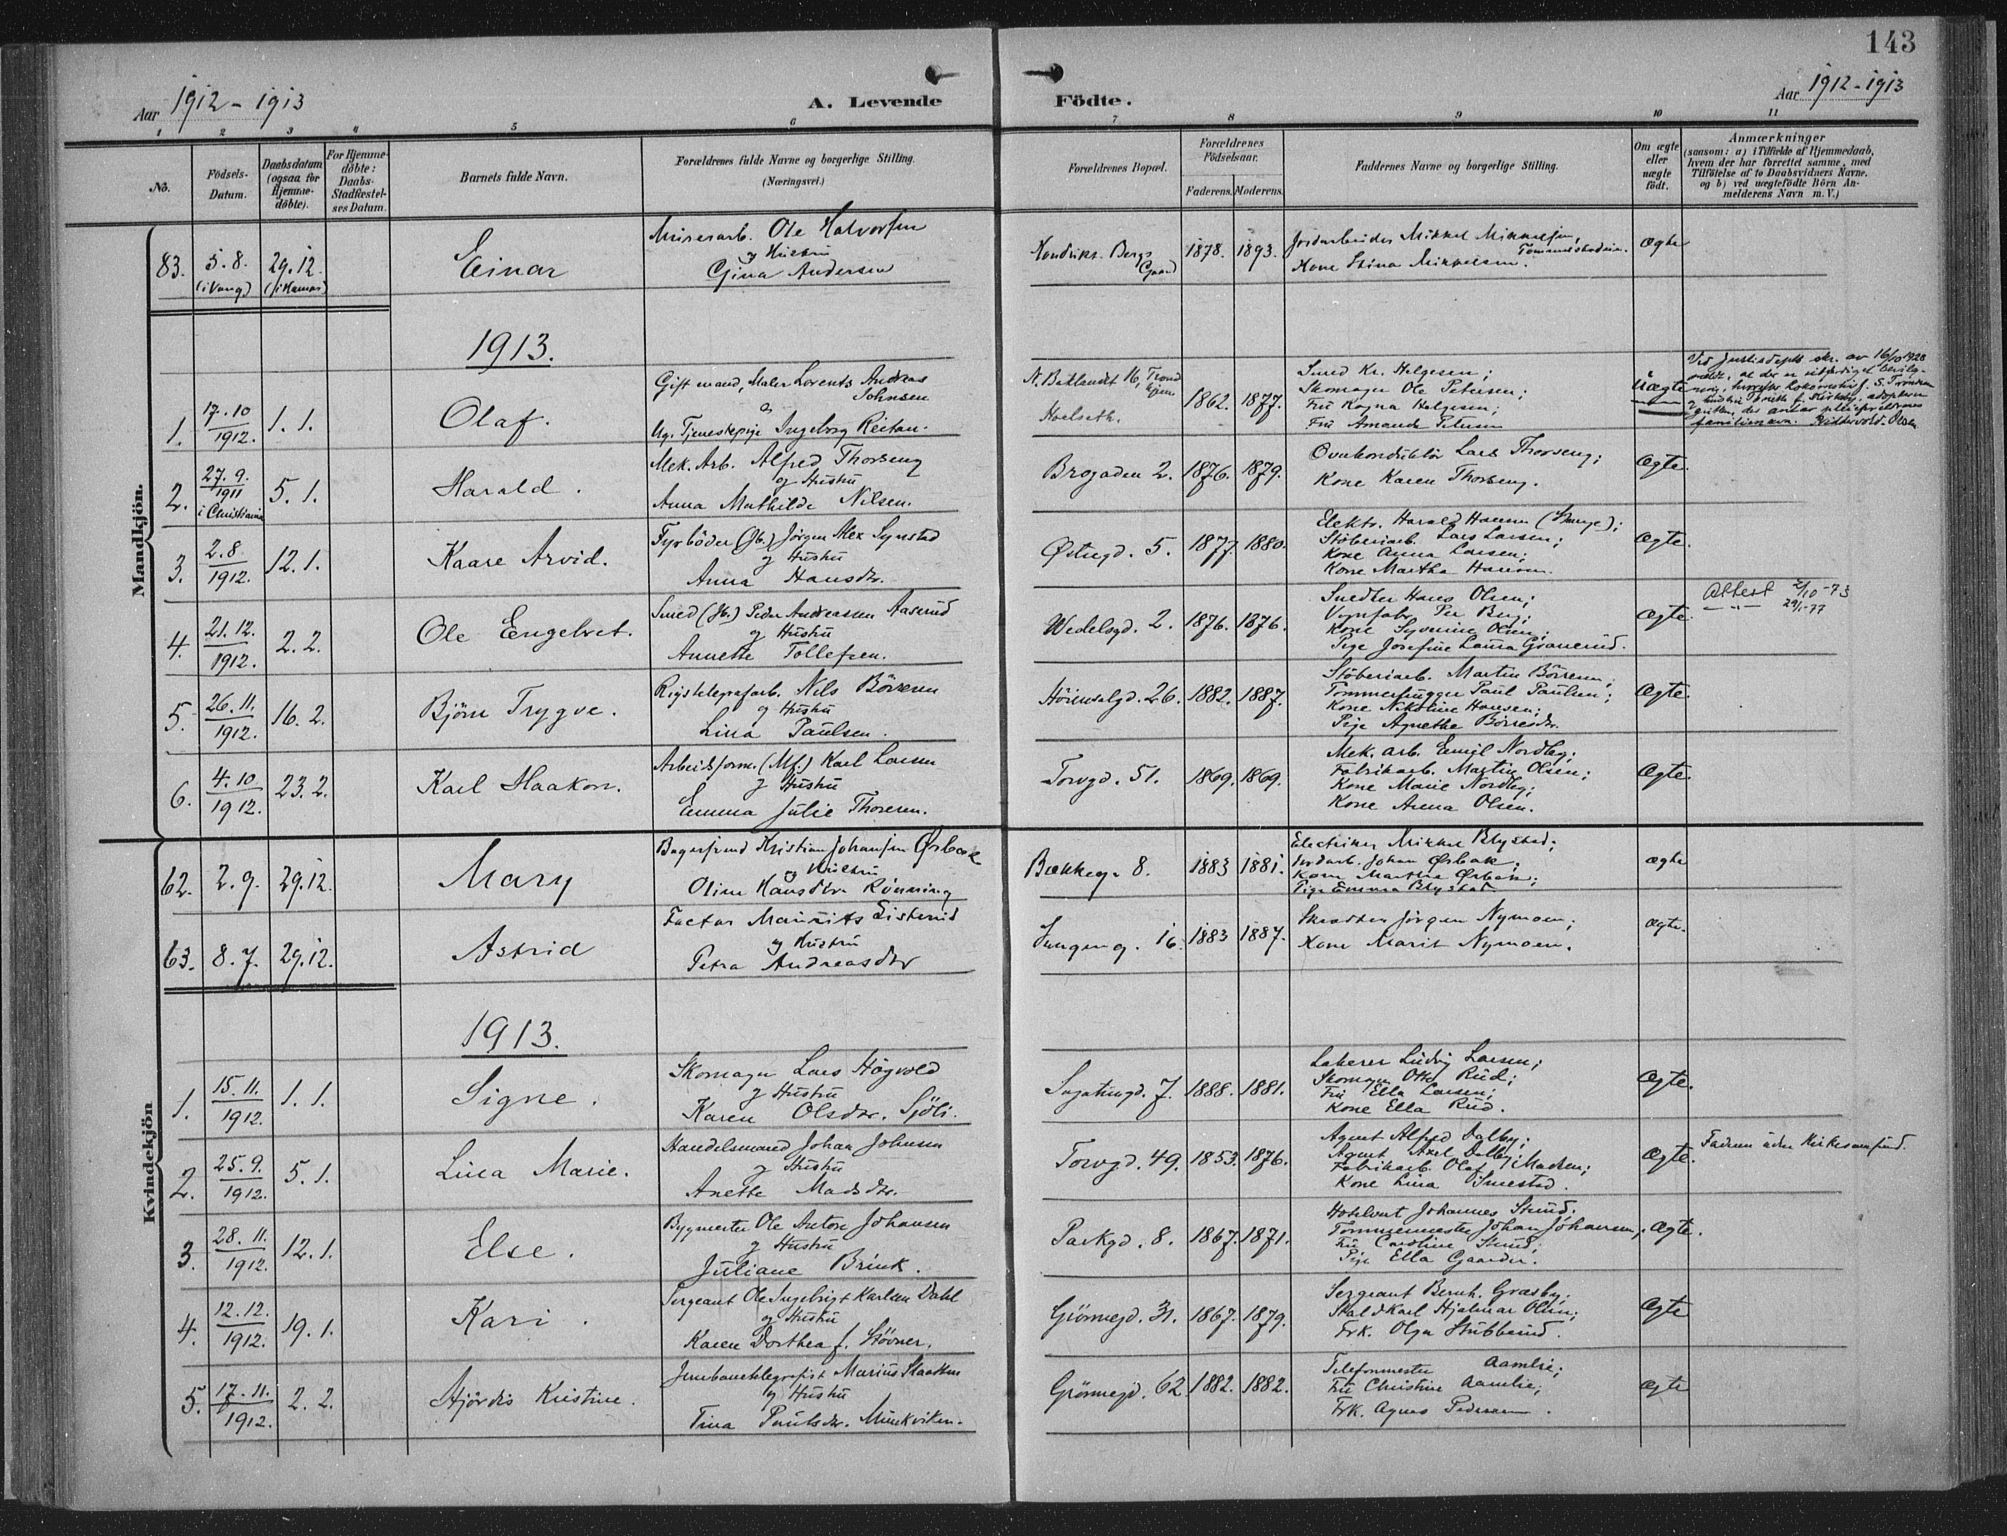 143
Aar 1912-1913
A. Levende Födte.
Aar 1912-1913
1 2 3 4 5 6 7 8 9 10 11
No.
Födsels-Datum.
Daabsdatum (ogsaa for Hjemme-döbte).
For Hjemme-döbte: Daabs-Stadfæstel-ses Datum.
Barnets fulde Navn.
Forældrenes fulde Navne og borgerlige Stilling.
(Næringsvei.)
Forældrenes Bopæl.
Forældrenes Födselsaar.
Faderens. Moderens.
Faddernes Navne og borgerlige Stilling.
Om ægte eller uægte födt.
Anmærkninger
(saasom: a) i Tilfælde af Hjemmedaab,
hvem der har forrettet samme, med
Tilföielse af to Daabsvidners Navne,
og b) ved uægtefödte Börn An-
melderens Navn m. V.)
Mandkjön.
83. 5.8. (i Vang) 29.12. (i Hamar) Einar
Murerarb. Ole Halvorsen
og Hustru
Gina Andersen
Bergs Gaard 1878. 1893.
Jordarbeider Mikkel Mikkelsen,
Kone Stina Mikkelsen.
ægte
1913.
1. 17.10 1912. 1.1. Olaf.
Gift mand, Maler Lorents Andreas
Johnsen
&
Ug. Tjenestepige Ingeborg Reitan.
N. Baklandet 16, Trond
hjem
Hoelseth. 1862. 1877.
Smed Kr. Helgesen;
Skomager Ole Petersen;
Fru Ragna Helgesen;
Fru Amanda Petersen
Uægte
Ved Justisdepts skr. av 16/10 1928
familienavn.
2. 27.9. 1911 i Christiania 5.1. Harald.
Mek. Arb. Alfred Thorseng
og Hustru
Anna Mathilde Nilsen.
Brogaden 2. 1876. 1879.
Ovnkonduktör Lars Thorseng;
Kone Karen Thorseng.
Ægte.
3. 2.8 1912. 12.1. Kaare Arvid.
Fyrböder (Jb.) Jörgen Alex Synstad
og Hustru
Anna Hansdtr.
Østregd. 5. 1877 1880.
Elektr. Harald Hansen;
Stöberiarb. Lars Larsen;
Kone Anna Larsen;
Kone Martha Hansen.
Ægte.
4. 21.12. 1912. 2.2. Ole Engebret.
Smed (Jb.) Peder Andreassen Aaserud
og Hustru
Annette Tollefsen.
Wedelsgd. 2. 1876. 1876.
Smedter Hans Olsen;
Vognfabr. Per Berg;
Kone Syverine Olsen;
Pige Josefine Laura Granerud.
Ægte.
Attest 2/10-73
—"— 29/1-77
5. 26.11. 1912. 16.2. Björn Trygve.
Rigstelegrafarb. Nils Börresen
og Hustru
Lina Paulsen.
Höiensalgd. 26. 1882. 1887.
Stöberiarb. Martin Börresen;
Tömmerhugger Paul Paulsen;
Kone Nikoline Hansen;
Pige Agnethe Börresdtr.
Ægte.
6. 4.10 1912. 23.2. Karl Haakon.
Arbeidsform. (Mf.) Karl Larsen
og Hustru
Emma Julie Thoresen.
Torvgd. 51. 1869. 1869.
Mek. arb. Emil Nordby;
Fabrikarb. Martin Olsen;
Kone Marie Nordby;
Kone Anna Olsen.
Ægte.
Kvindekjön
62. 2.9. 29.12. Mary
Bagersvend Kristian Johansen Ørbæk
og Hustru
Oline Hansdtr. Rönning
Bækkeg. 8. 1883 1881.
Electriker Mikkel Blystad;
Jordarb. Johan Ørbæk;
Kone Martha Ørbæk;
Pige Emma Blystad.
ægte
63. 8.7. 29.12. Astrid
Factor Mauritz Eisterud
og Hustru
Petra Andreasdtr
16. 1883 1887.
Skrædder Jörgen Nymoen;
Kone Marit Nymoen.
ægte.
1913.
1. 15.11. 1912. 1.1. Signe.
Skomager Lars Högvold
og Hustru
Karen Olsdtr. Sjöli.
Sagatungd. 7. 1888. 1881.
Lakerer Ludvig Larsen;
Skomager Otto Rud;
Fru Ella Larsen;
Kone Ella Rud.
Ægte.
2. 25.9. 1912. 5.1. Lina Marie.
Handelsmand Johan Johnsen
og Hustru
Anette Madsdtr.
Torvgd. 49. 1853. 1876.
Agent Alfred Dalby;
Agent Axel Dalby;
Fabrikarb. Olaf Madsen;
Kone Lina Smestad.
Ægte.
Faderen uden Kirkesamfund.
3. 28.11. 1912. 12.1. Else.
Bygmester Ole Anton Johansen
og Hustru
Juliane Brink.
Parkgd. 8. 1867. 1871.
Hotelvert Johannes Strud;
Tömmermester Johan Johansen;
Fru Caroline Strud;
Pige Ella Gaarder.
Ægte.
4. 12.12. 1912. 19.1. Kari.
Sergeant Ole Ingebrigt Karlsen Dahl
og Hustru
Karen Dorthea f. Stövner.
Grönnegd. 31. 1867. 1879.
Sergeant Bernh. Græsby;
Staldkarl Hjalmar Olsen;
Frk. Olga Stubberud.
Ægte
5. 17.11. 1912. 2.2. Hjördis Kristine.
Jernbanetelegrafist Marius Haakon
og Hustru
Tina Paulsdtr. Munkviken.
Grönnegd. 62 1882. 1882.
Telefonmester Aamlie;
Fru Christine Aamlie;
Frk. Agnes Pedersen.
ægte